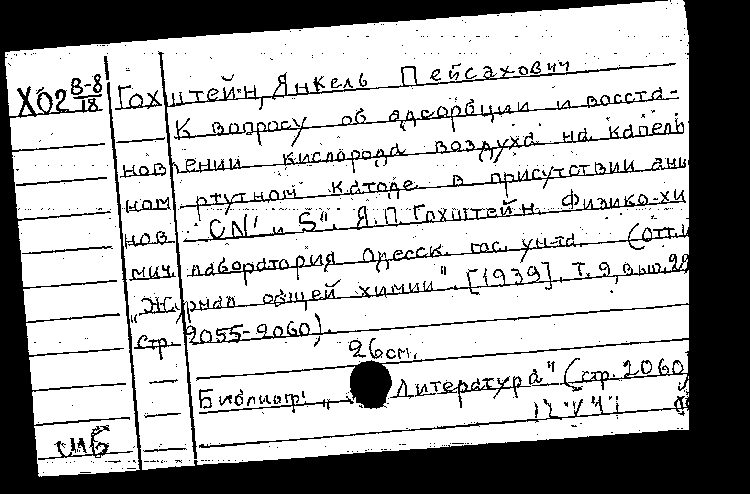 Х02 В-8/18 Гохштейн, Янкель Пейсахович
К вопросу об адсорбции и восста-
новлении кислорода воздуха на капель
ном ртутном катоде в присутствии ани
нов CN' и S". Я.П. Гохштейн. Физико-хи
мич. лаборатория Одесск. гос. ун-та. (Отт. и
"Журнал общей химии". [1939], Т. 9, вып. 22
стр. 2055-2060).
26 см.
Библиогр: „Литература" (стр. 2060)
12 VI 41